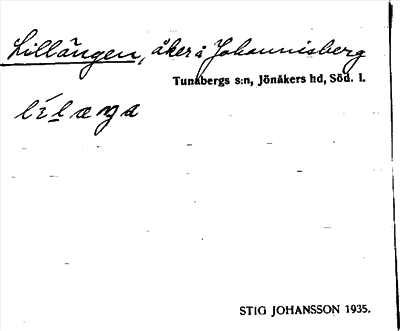 Lillängen, åker å Johannisberg
Tunabergs s:n, Jönåkers hd, Söd. l.
STIG JOHANSSON 1935.